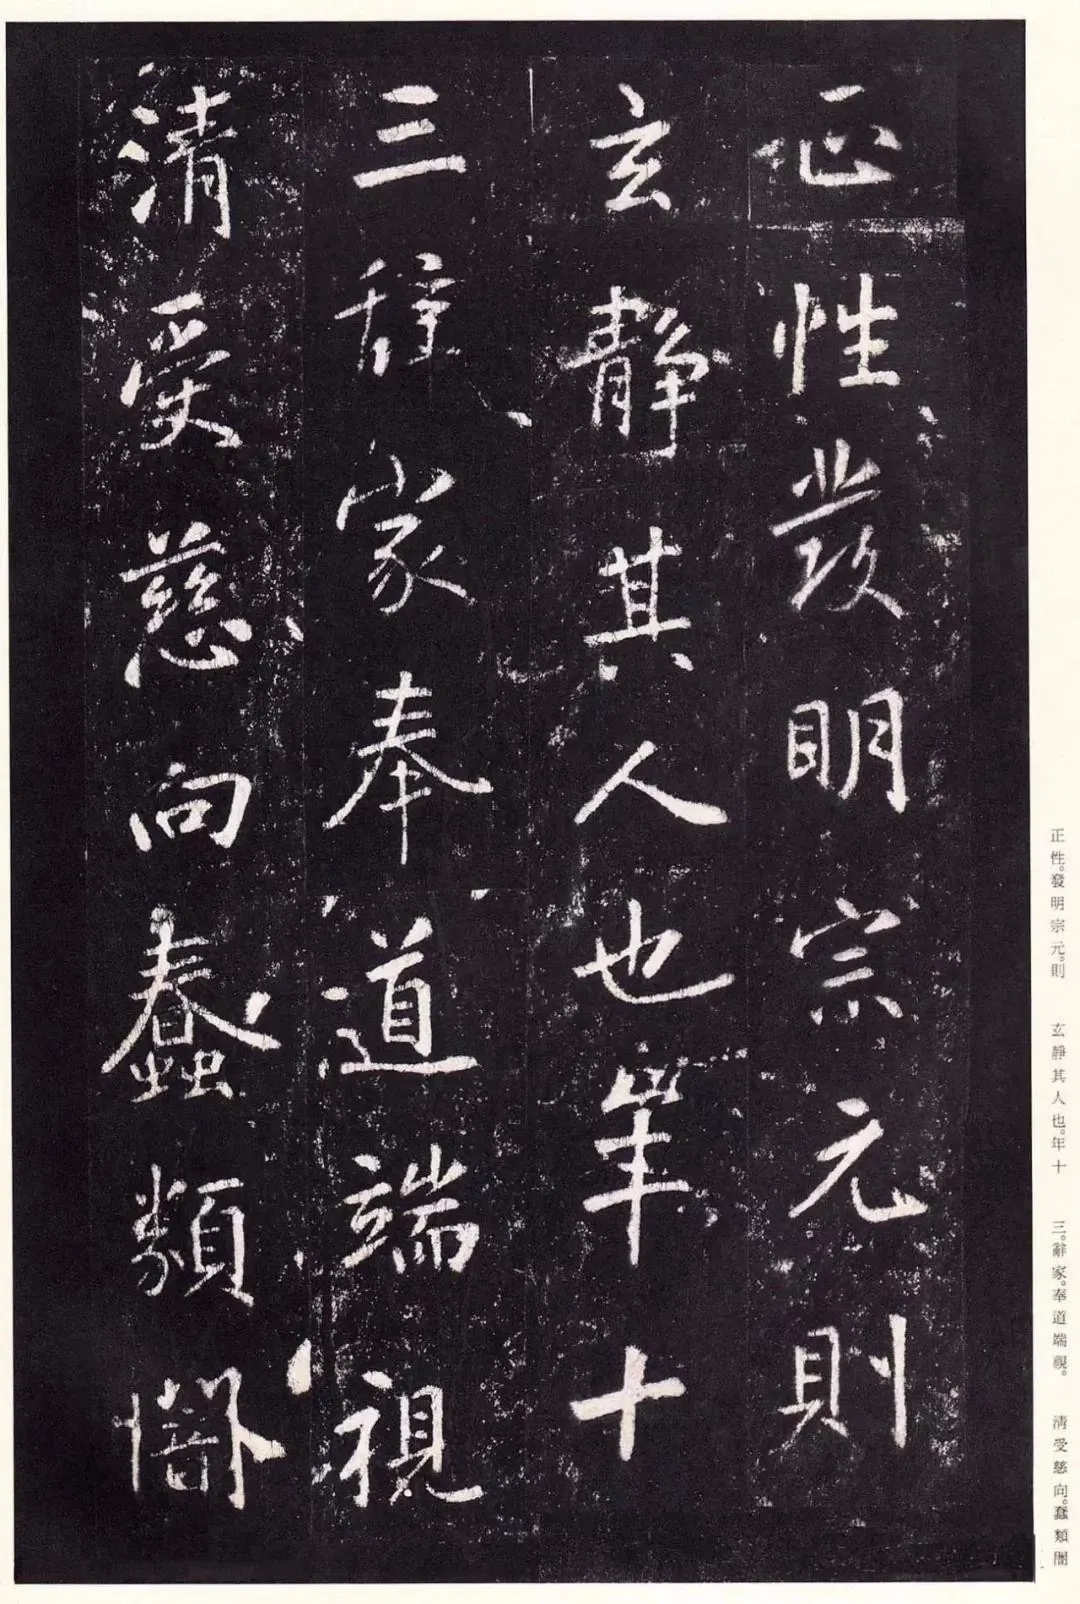 正性發明宗元則
玄靜其人也年十
三辭家奉道端視
清受慈向蠢類闇
正性。發明宗元。則 玄靜其人也。年十 三。辭家。奉道端視。 清受慈向。蠢類闇